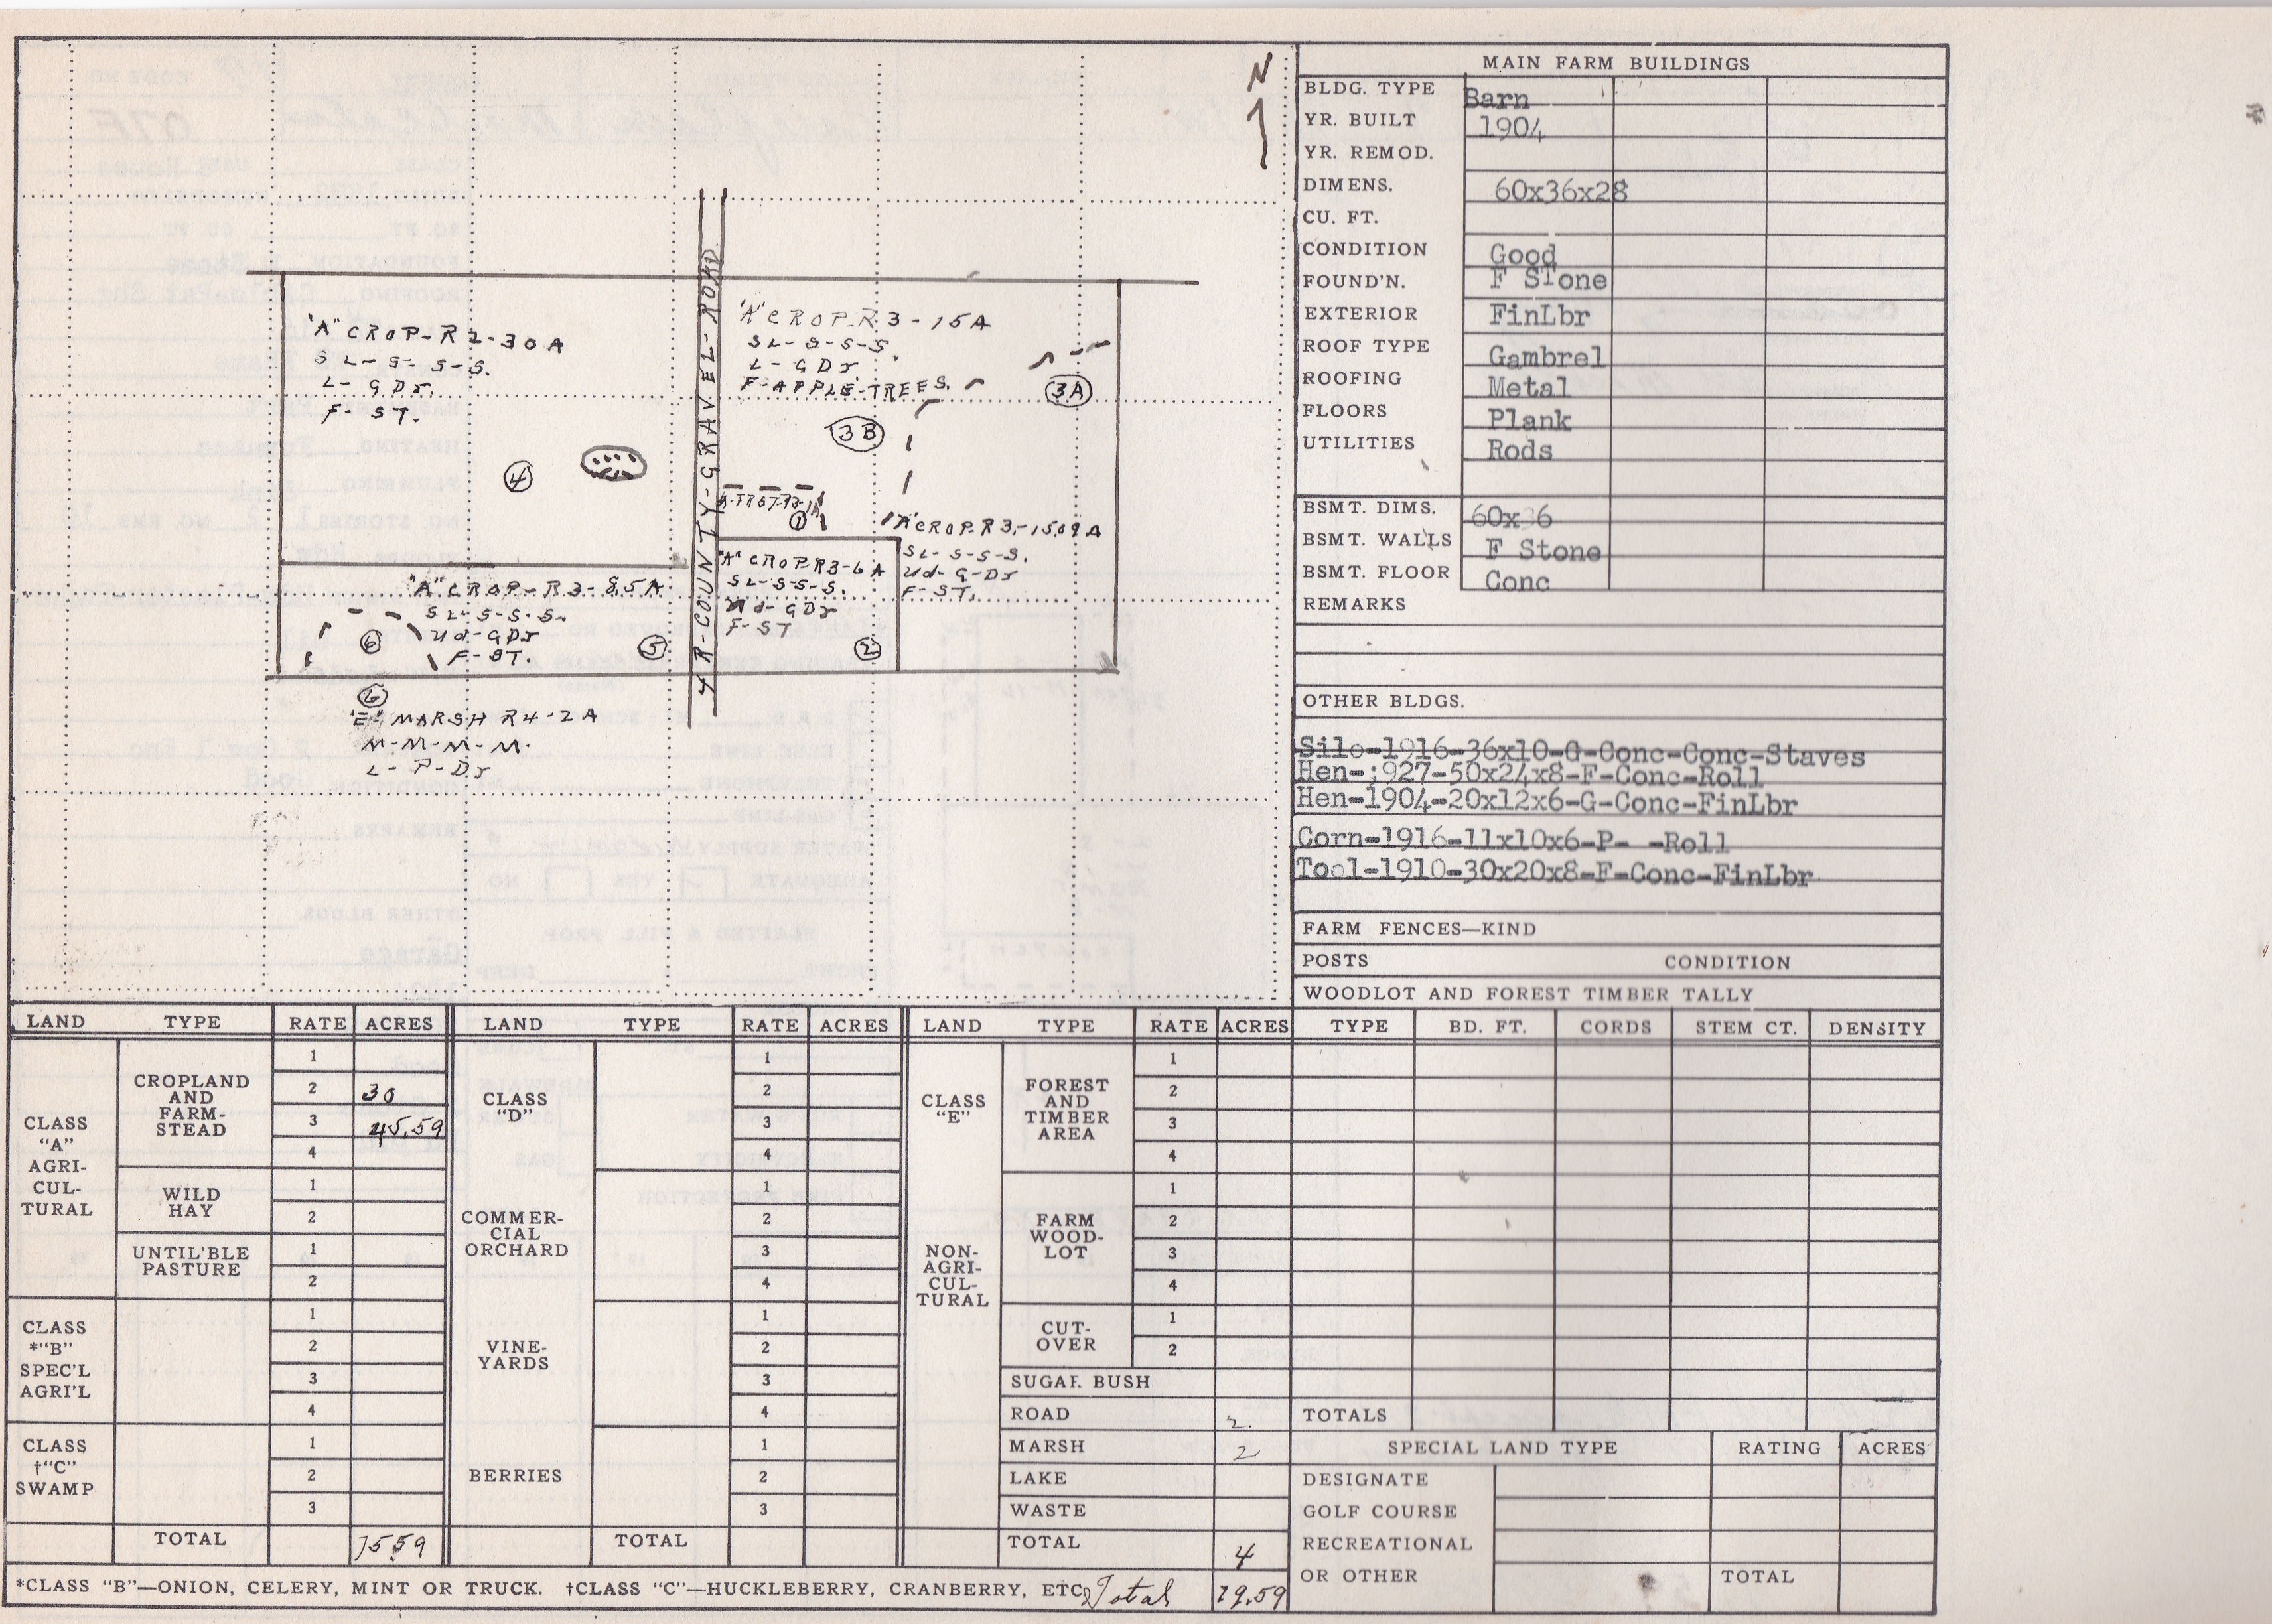 N
"A" CROP-R 2-30 A
SL-S-S-S.
L-GDr.
F-ST.
4
4 R-COUNTY-GRAVEL-ROAD
"A" CROP-R 3-15 A
SL-S-S-S
L-GDr
F-APPLE-TREES.
3A
3B
1
"A" CROP-R3-15.09 A
SL-S-S-S.
Ud-G-Dr
F-ST.
"A" CROP R3-6 A
SL-S-S-S.
Ud-GDr
F-ST
2
"A" CROP-R3-8.5A
SL-S-S-S.
Ud-GDr
F-ST.
6
5
6
"E" MARSH R4-2A
M-M-M-M.
L-P-Dr
MAIN FARM BUILDINGS
BLDG. TYPE Barn
YR. BUILT 1904
YR. REMOD.
DIMENS. 60x36x28
CU. FT.
CONDITION Good
FOUND'N. F Stone
EXTERIOR FinLbr
ROOF TYPE Gambrel
ROOFING Metal
FLOORS Plank
UTILITIES Rods
BSMT. DIMS. 60x36
BSMT. WALLS F Stone
BSMT. FLOOR Conc
REMARKS
OTHER BLDGS.
Silo-1916-36x10-G-Conc-Conc-Staves
Hen-:927-50x24x8-F-Conc-Roll
Hen-1904-20x12x6-G-Conc-FinLbr
Corn-1916-11x10x6-P- -Roll
Tool-1910-30x20x8-F-Conc-FinLbr
FARM FENCES—KIND
POSTS CONDITION
WOODLOT AND FOREST TIMBER TALLY
TYPE BD. FT. CORDS STEM CT. DENSITY
TOTALS
SPECIAL LAND TYPE RATING ACRES
DESIGNATE
GOLF COURSE
RECREATIONAL
OR OTHER TOTAL
LAND TYPE RATE ACRES
CLASS
"A"
AGRI-
CUL-
TURAL
CROPLAND
AND
FARM-
STEAD
1
2 30
3 45.59
4
WILD
HAY
1
2
UNTIL'BLE
PASTURE
1
2
CLASS
*"B"
SPEC'L
AGRI'L
1
2
3
4
CLASS
†"C"
SWAMP
1
2
3
TOTAL 75.59
LAND TYPE RATE ACRES
CLASS
"D"
1
2
3
4
COMMER-
CIAL
ORCHARD
1
2
3
4
VINE-
YARDS
1
2
3
4
BERRIES
1
2
3
TOTAL
LAND TYPE RATE ACRES
CLASS
"E"
NON-
AGRI-
CUL-
TURAL
FOREST
AND
TIMBER
AREA
1
2
3
4
FARM
WOOD-
LOT
1
2
3
4
CUT-
OVER
1
2
SUGAR BUSH
ROAD 2.
MARSH 2
LAKE
WASTE
TOTAL 4
*CLASS "B"—ONION, CELERY, MINT OR TRUCK. †CLASS "C"—HUCKLEBERRY, CRANBERRY, ETC. Total 79.59